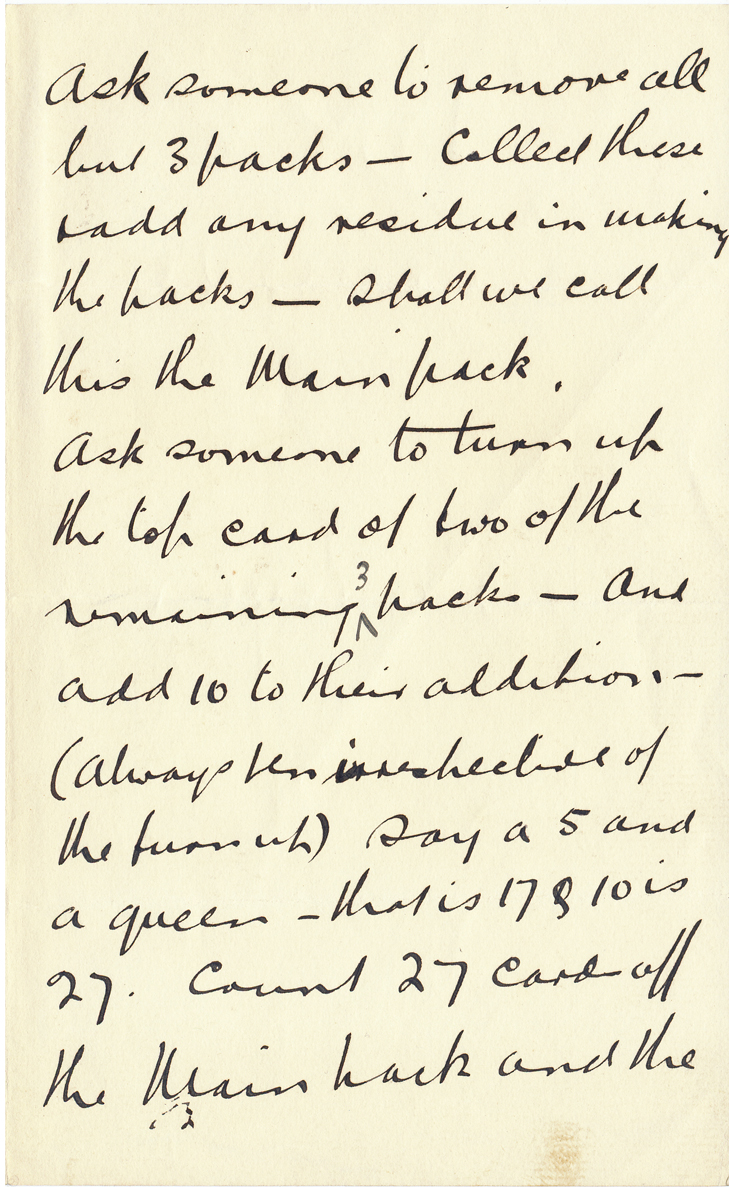 Ask someone to remove all
but 3 packs — Collect these
& add any residue in making
the packs — shall we call
this the Main pack.
Ask someone to turn up
the top card of two of the
remaining 3 packs — And
add 10 to their addition —
(always ten irrespective of
the turn up) say a 5 and
a queen — that is 17 & 10 is
27. Count 27 cards off
the Main pack and the